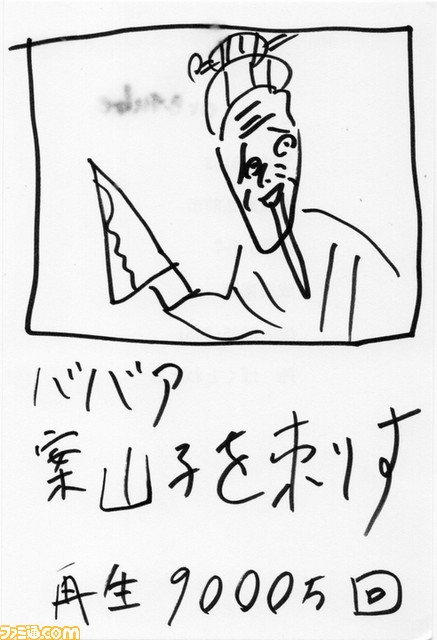 ババア
案山子を刺す
再生 9000万回
ファミ通.com